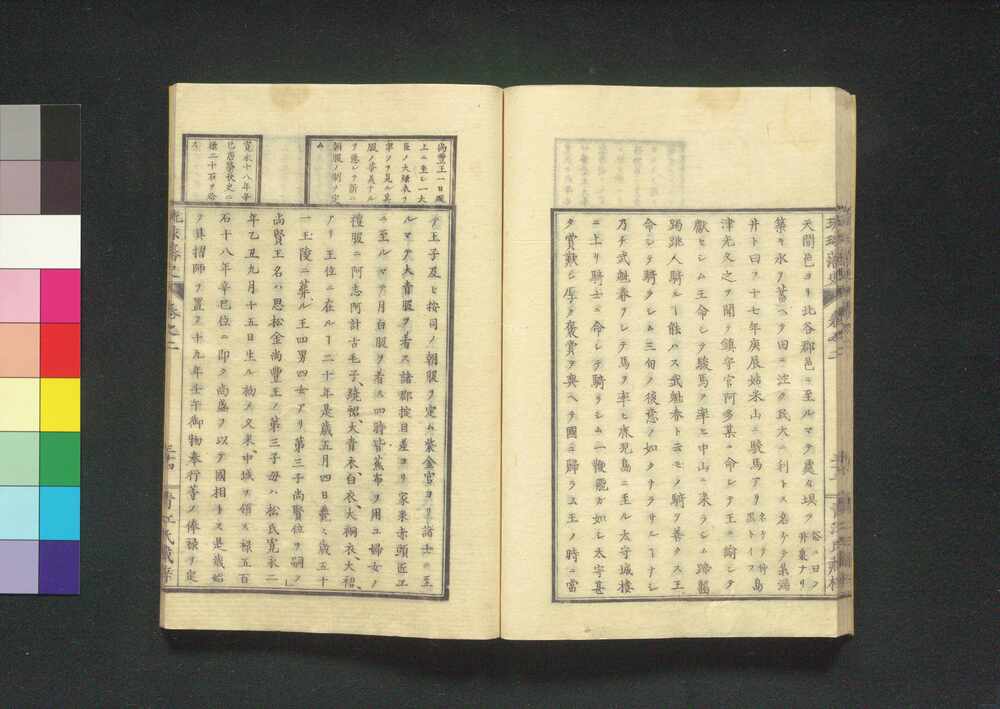 天間邑ヨリ北谷郡邑ニ至ルマテ處々垻ヲ
築キ水ヲ蓄ヘ田ニ注ク民大ニ利トス名ケテ糸満
井ト曰フ十七年庚辰姑米山ニ駿馬アリ名ケテ竹島黒トイフ
津光久之ヲ聞テ鎭守官阿多某ニ命シテ王ニ諭シテ
獻セシム王命シテ駿馬ヲ率ヒ中山ニ来ラシム蹄齧
踢跳人騎ルー能ハス武魁春ト云モノ騎ヲ善クス王
命シテ騎ラシム三旬ノ後意ノ如クナラサルーナシ
乃チ武魁春ヲシテ馬ヲ率ヒ鹿児島ニ至ル太守城樓
ニ上リ騎士ニ命シテ騎リシム一鞭電ノ如シ太守甚
タ賞歎シ厚ク褒賞ヲ與ヘテ國ニ歸ラシム王ノ時ニ當
尚豊王一日殿
上ニ坐シ一大
臣ノ大縁衣ヲ
穿ツヲ見ル其
服ノ
ヲ悪シテ新ニ
朝服ノ制ヲ定
ム
寛永十八年辛
巳唐榮秋史ニ
禄二十石ヲ給
ス
テ王子及ヒ按司ノ朝服ヲ定ム紫金官ヨリ諸士ニ至
ルマテ大青服ヲ着ス諸郡掟目差ヨリ家来赤頭匠工
ニ至ルマテ月白服ヲ着ス四時皆蕉布ヲ用ユ婦女ノ
禮服ニ阿志阿計古毛子、繞裙、大青衣、白衣、大桐衣、大裙、
アリ王位ニ在ルー二十年是歳五月四日薨ス歳五十
一王陵ニ葬ル王四男四女アリ第三子尚賢位ヲ嗣フ」
尚賢王名ハ思松金尚豊王ノ第三子母ハ松氏寛永二
年乙丑九月十五日生ル初メ久米、中城ヲ領ス禄五百
石十八年辛巳位ニ即ク尚盛ヲ以テ國相トス是歳始
テ眞摺師ヲ置ク十九年壬午御物奉行等ノ俸禄ヲ定
琉球藩史 巻之二
三十四 青江氏蔵梓